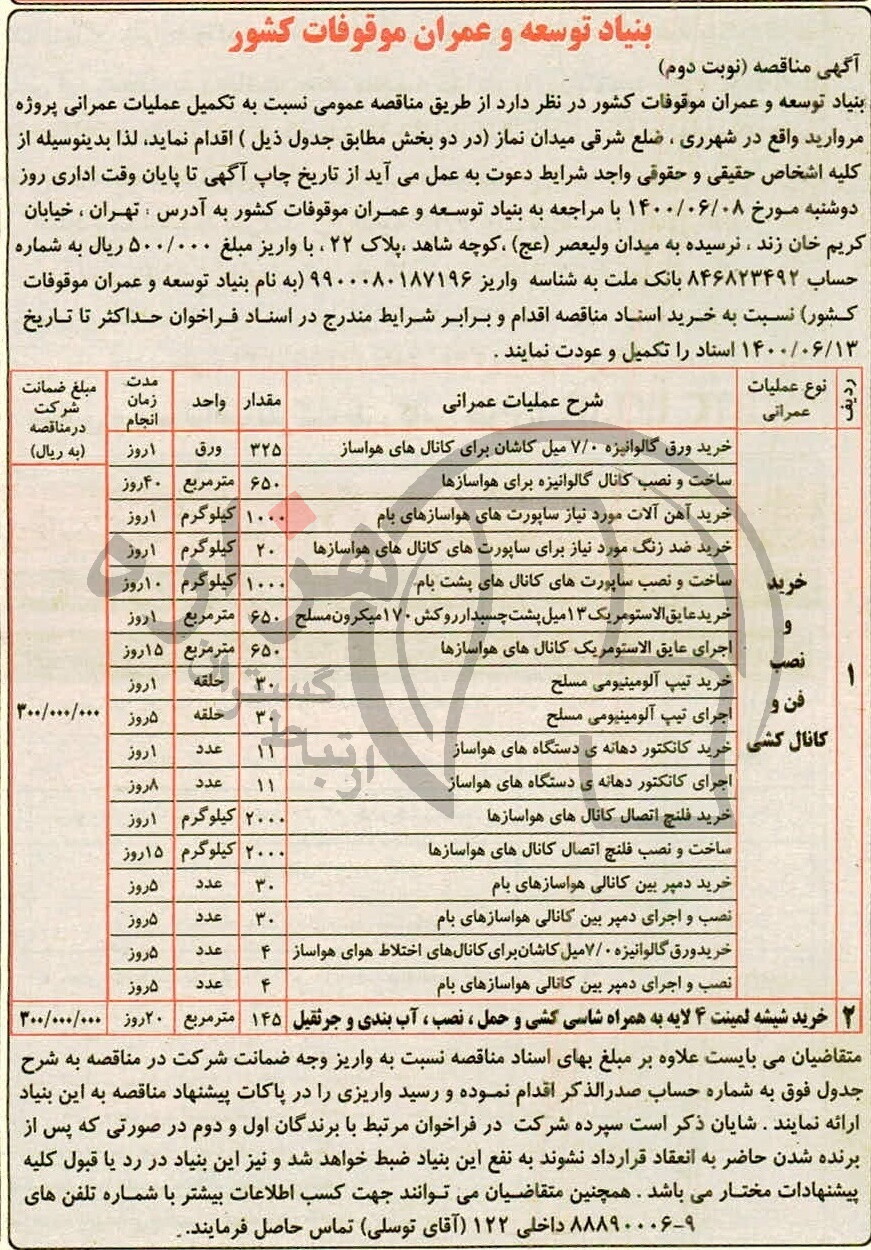 بنیاد توسعه و عمران موقوفات کشور
آگهی مناقصه (نوبت دوم)
بنیاد توسعه و عمران موقوفات کشور در نظر دارد از طریق مناقصه عمومی نسبت به تکمیل عملیات عمرانی پروژه
مروارید واقع در شهرری ، ضلع شرقی میدان نماز (در دو بخش مطابق جدول ذیل ) اقدام نماید، لذا بدینوسیله از
کلیه اشخاص حقیقی و حقوقی واجد شرایط دعوت به عمل می آید از تاریخ چاپ آگهی تا پایان وقت اداری روز
دوشنبه مورخ ۱۴۰۰/۰۶/۰۸ با مراجعه به بنیاد توسعه و عمران موقوفات کشور به آدرس : تهران ، خیابان
کریم خان زند ، نرسیده به میدان ولیعصر (عج) ،کوچه شاهد ،پلاک ۲۲ ، با واریز مبلغ ۵۰۰/۰۰۰ ریال به شماره
حساب ۸۴۶۸۲۳۴۹۲ بانک ملت به شناسه واریز ۹۹۰۰۰۸۰۱۸۷۱۹۶ (به نام بنیاد توسعه و عمران موقوفات
کشور) نسبت به خرید اسناد مناقصه اقدام و برابر شرایط مندرج در اسناد فراخوان حداکثر تا تاریخ
۱۴۰۰/۰۶/۱۳ اسناد را تکمیل و عودت نمایند .
ردیف نوع عملیات عمرانی شرح عملیات عمرانی مقدار واحد مدت زمان انجام مبلغ ضمانت شرکت درمناقصه (به ریال)
۱ خرید و نصب فن و کانال کشی ۳۰۰/۰۰۰/۰۰۰
خرید ورق گالوانیزه ۷/۰ میل کاشان برای کانال های هواساز ۳۲۵ ورق ۱روز
ساخت و نصب کانال گالوانیزه برای هواسازها ۶۵۰ مترمربع ۴۰روز
خرید آهن آلات مورد نیاز ساپورت های هواسازهای بام ۱۰۰۰ کیلوگرم ۱روز
خرید ضد زنگ مورد نیاز برای ساپورت های کانال های هواسازها ۲۰ کیلوگرم ۱روز
ساخت و نصب ساپورت های کانال های پشت بام. ۱۰۰۰ کیلوگرم ۱۰روز
خریدعایق‌الاستومریک ۱۳میل‌پشت‌چسبدارروکش ۱۷۰میکرون‌مسلح ۶۵۰ مترمربع ۱روز
اجرای عایق الاستومریک کانال های هواسازها ۶۵۰ مترمربع ۱۵روز
خرید تیپ آلومینیومی مسلح ۳۰ حلقه ۱روز
اجرای تیپ آلومینیومی مسلح ۳۰ حلقه ۵روز
خرید کانکتور دهانه ی دستگاه های هواساز ۱۱ عدد ۱روز
اجرای کانکتور دهانه ی دستگاه های هواساز ۱۱ عدد ۸روز
خرید فلنج اتصال کانال های هواسازها ۲۰۰۰ کیلوگرم ۱روز
ساخت و نصب فلنج اتصال کانال های هواسازها ۲۰۰۰ کیلوگرم ۱۵روز
خرید دمپر بین کانالی هواسازهای بام ۳۰ عدد ۵روز
نصب و اجرای دمپر بین کانالی هواسازهای بام ۳۰ عدد ۵روز
خریدورق‌گالوانیزه ۷/۰میل‌کاشان‌برای‌کانال‌های اختلاط هوای هواساز ۴ عدد ۵روز
نصب و اجرای دمپر بین کانالی هواسازهای بام ۴ عدد ۵روز
۲ خرید شیشه لمینت ۴ لایه به همراه شاسی کشی و حمل ، نصب ، آب بندی و جرثقیل ۱۴۵ مترمربع ۲۰روز ۳۰۰/۰۰۰/۰۰۰
متقاضیان می بایست علاوه بر مبلغ بهای اسناد مناقصه نسبت به واریز وجه ضمانت شرکت در مناقصه به شرح
جدول فوق به شماره حساب صدرالذکر اقدام نموده و رسید واریزی را در پاکات پیشنهاد مناقصه به این بنیاد
ارائه نمایند . شایان ذکر است سپرده شرکت در فراخوان مرتبط با برندگان اول و دوم در صورتی که پس از
برنده شدن حاضر به انعقاد قرارداد نشوند به نفع این بنیاد ضبط خواهد شد و نیز این بنیاد در رد یا قبول کلیه
پیشنهادات مختار می باشد . همچنین متقاضیان می توانند جهت کسب اطلاعات بیشتر با شماره تلفن های
۸۸۸۹۰۰۰۶-۹ داخلی ۱۲۲ (آقای توسلی) تماس حاصل فرمایند.
هزاره
ارتباط گستران